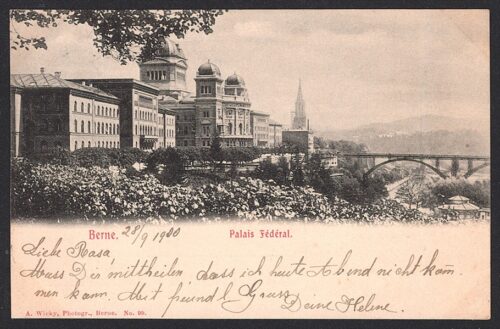 Berne. 28/9 1900 Palais Fédéral.
Liebe Rosa,
Muss Dir mittheilen dass ich heute Abend nicht kom̄
men kann. Mit freundl Gruss
Deine Helene.
A. Wicky, Photogr., Berne. No. 99.